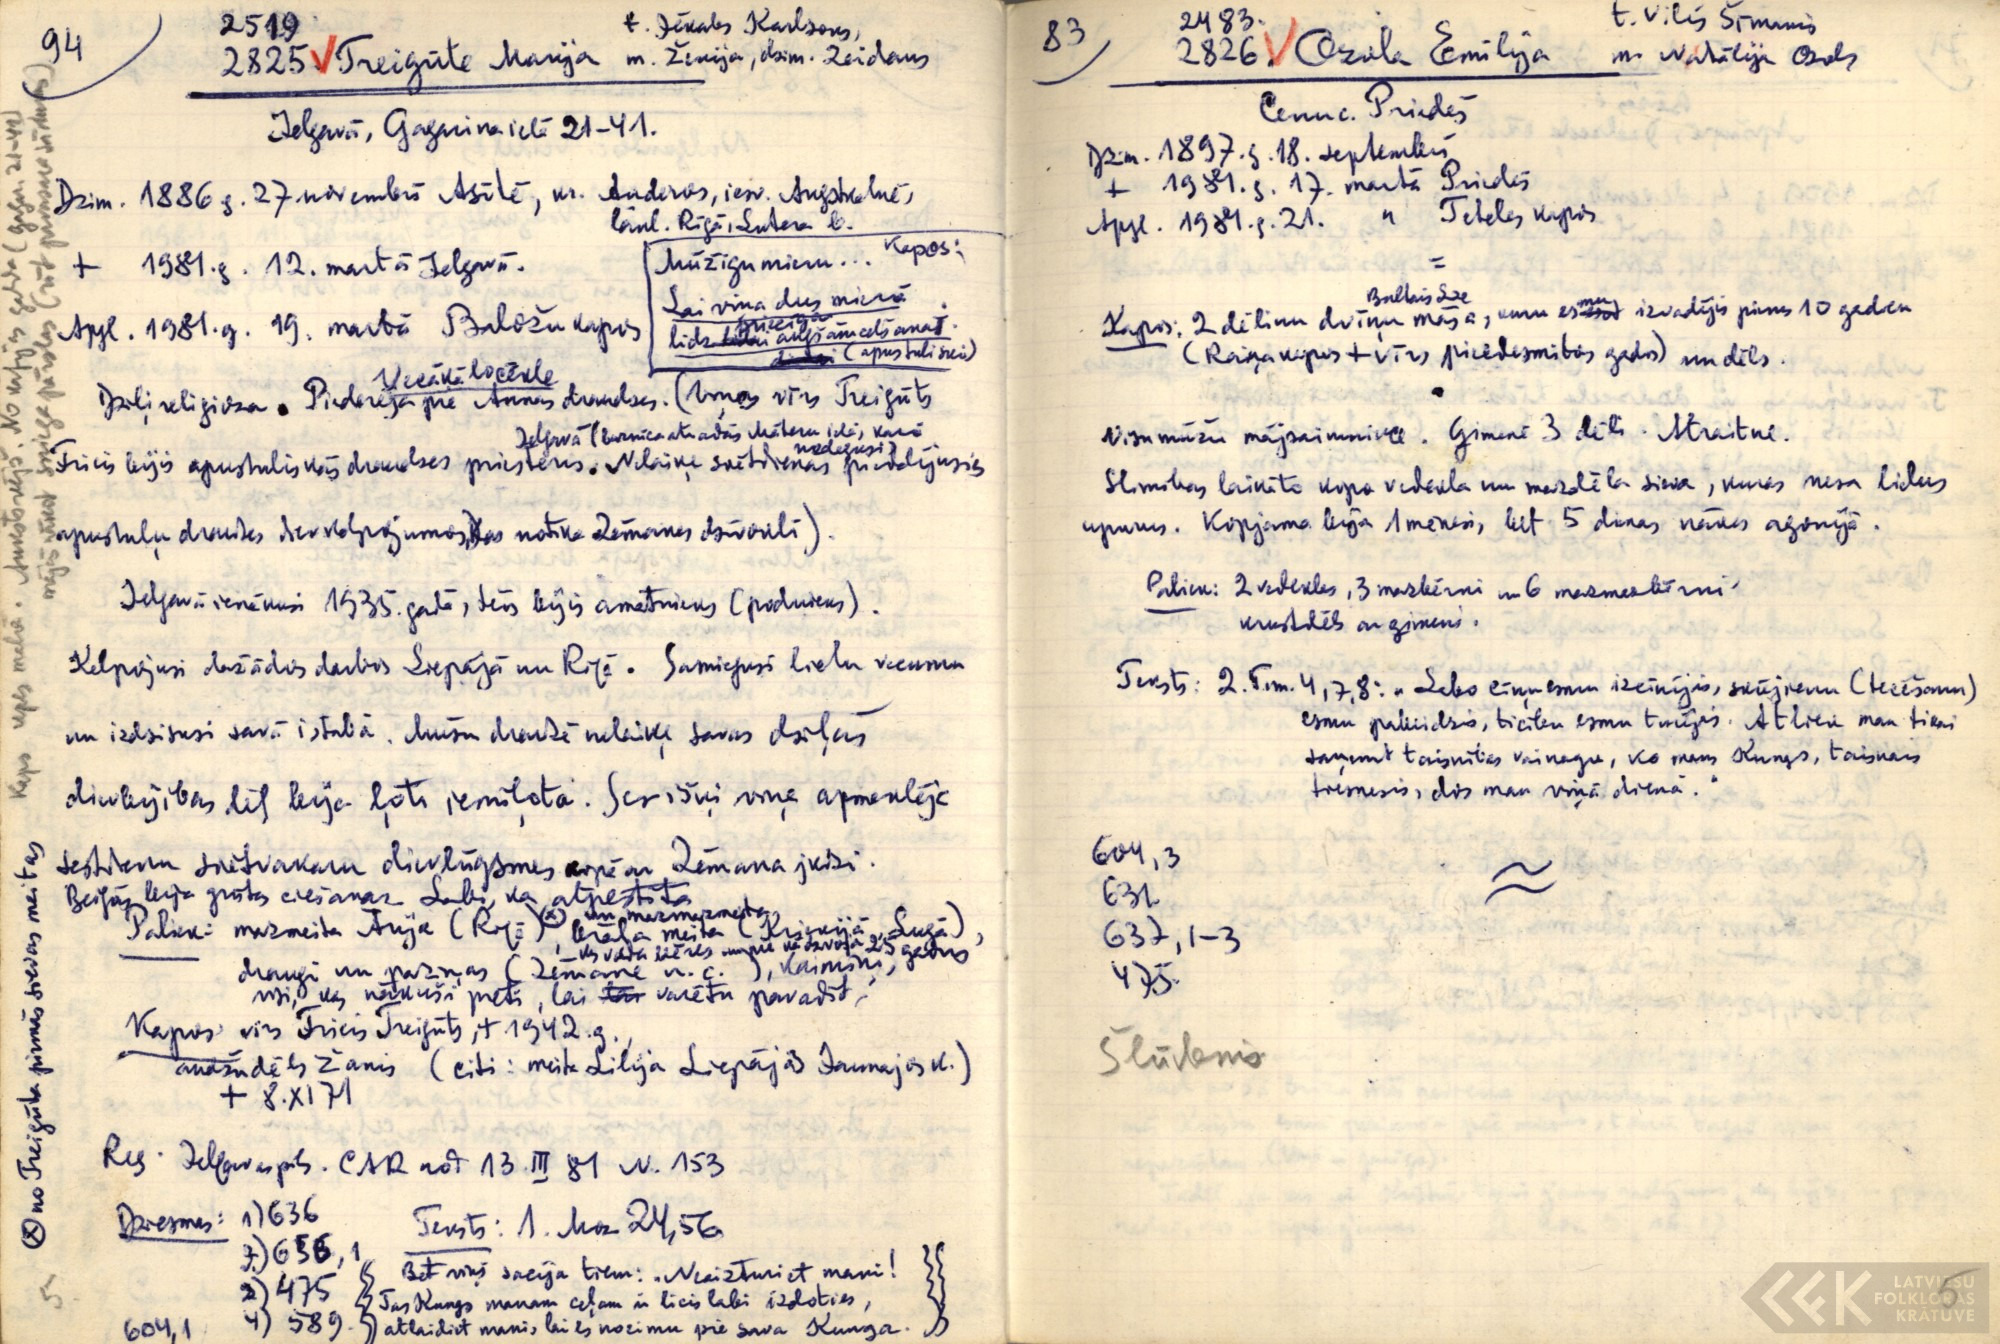 94
2519
2825 V Treigūte Marija
t. Jēkabs Karlsons,
m. Ženija, dzim. Zeidaus
Jelgavā, Gagarina ielā 21-41.
Dzim. 1886 g. 27 novembrī Asītē, kr. Anderos, iesv. Augstkalnē,
laul. Rīgā, Lutera b.
+ 1981.g. 12. martā Jelgavā.
Apgl. 1981.g. 19. martā Baložu kapos
Kapos:
Mūžīgu mieru...
Lai viņa dus mierā
līdz priecīgai augšāmcelšanai.
(apustuliskie)
Vecākā locekle
Dziļi reliģioza. Piederēja pie Annas draudzes. (Viņas vīrs Treigūts
Jelgavā (baznīca atradās Māteru ielā, kura
nodegusi)
Fricis bijis apustuliskās draudzes priesteris. Nelaiķe svētdienas piedalījusies
apustuļu draudzes dievkalpojumos, kas notika Zēmanes dzīvoklī).
Jelgavā ienākusi 1935. gadā, tēvs bijis amatnieks (podnieks).
Kalpojusi dažādos darbos Liepājā un Rīgā. Sasniegusi lielu vecumu
un izdzisusi savā istabā. Mūsu draudzē nelaiķe savas dziļās
dievbijības dēļ bija ļoti iemīļota. Sevišķi viņa apmeklēja
sestdienu svētvakaru dievlūgsmes kopā ar Zēmana jkdzi.
Beigās bija grūtas ciešanas. Labi, ka atpestīta
Paliek: mazmeita Ārija (Rīgā) (x) un mazmazmeita,
brāļa meita (Krievijā, Lugā),
kas vada bēres un pie kā dzīvoja 25 gadus
draugi un paziņas (Zēmane u.c.), kaimiņi,
visi, kas nākuši pretī, lai varētu pavadīt.
Kapos: vīrs Fricis Treigūts, + 1942.g.,
audžudēls Žanis (citi: meita Lilija Liepājas Jaunajos k.)
+ 8.XI 71
Reg. Jelgavas pils. CAR nod 13.III 81 N. 153
Dziesmas: 1) 636
2) 656, 1
3) 475
4) 589.
604,1
Teksts: 1. Moz 24,56
Bet viņš sacīja tiem: "Neaizturiet mani!
Tas Kungs manam ceļam ir licis labi izdoties,
atlaidiet mani, lai es nozīmu pie sava Kunga.
(x) no Treigūta pirmās sievas meitas
Kaps kapes malā.
5
83
2483.
2826. V Ozola Emīlija
t. Vilis Šīmanis
m. Natālija Ozols
Cenuc. Priedēs
Dzim. 1897.g. 18. septembrī
+ 1981.g. 17. martā Priedēs
Apgl. 1981.g. 21. " Teteles kapos
=
Baltais Sze
Kapos: 2 dēliņu dvīņu māsa, kuru esmu izvadījis pirms 10 gadiem
(Raiņa kapos + vīrs piecdesmitos gados) un dēls.
Visu mūžu mājsaimniece. Ģimenē 3 dēli. Atraitne.
Slimības laikā to kopa vedekla un mazdēla sieva, kuras nesa lielus
upurus. Kopjama bija 1 mēnesi, bet 5 dienas nākas agonijā.
Paliek: 2 vedeklas, 3 mazbērni un 6 mazmazbērni
krustdēls ar ģimeni.
Teksts: 2. Tim. 4,7,8: "Labo cīņu esmu izcīnījis, skrējienu (tecēšanu)
esmu pabeidzis, ticību esmu turējis. Atliek man tikai
saņemt taisnības vainagu, ko mans Kungs, taisnais
tiesnesis, dos man viņā dienā."
604,3
631.
637, 1-3
475.
Šlūkenis
LATVIEŠU
FOLKLORAS
KRĀTUVE